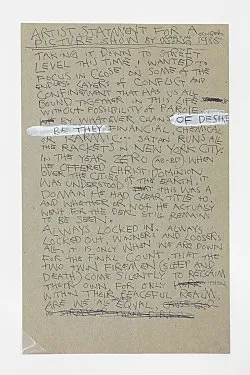 ARTIST STATMENT FOR A
PICTURE SHOW AT 1985
TAKING IT DOWN TO STREET
LEVEL THIS TIME I WANTED TO
FOCUS IN CLOSE ON SOME OF THE
ENDLESS LAYERS OF CONFLICT AND
CONFINEMENT THAT HAS US ALL
BOUND TOGETHER IN THIS LIFE
WITHOUT POSSIBILITY OF PAROLE.
BY WHATEVER CHAINS OF DESIRE
BE THEY FINANCIAL CHEMICAL
OR KARMIC... SATAN RUNS ALL
THE RACKETS IN NEW YORK CITY.
IN THE YEAR ZERO WHEN
HE OFFERED CHRIST DOMINION
OVER THE CITIES OF THE EARTH IT
WAS UNDERSTOOD THAT THIS WAS A
DOMAIN HE HAD COMPLETE TITLE TO,
AND WHETHER OR NOT HE ACTUALLY
WENT FOR THE DEAL STILL REMAINS
TO BE SEEN.
ALWAYS LOCKED IN, ALWAYS
LOCKED OUT, WINNERS AND LOOSERS
ALL. IT IS ONLY WHEN WE ARE DOWN
FOR THE FINAL COUNT, THAT THE
TWO TWIN FIREMEN (SLEEP AND
DEATH) COME SILENTLY TO RECLAIM
THEIR OWN FOR ONLY
WITHIN THEIR PEACEFUL REALM,
ARE WE ALL EQUAL.